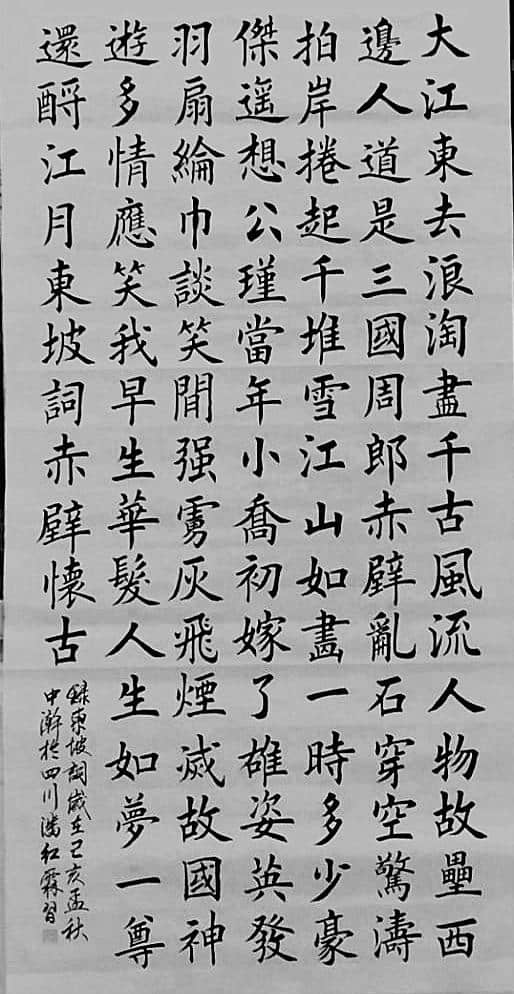 大江東去浪淘盡千古風流人物故壘西
邊人道是三國周郎赤壁亂石穿空驚濤
拍岸捲起千堆雪江山如畫一時多少豪
傑遥想公瑾當年小喬初嫁了雄姿英發
羽扇綸巾談笑間强虜灰飛煙滅故國神
遊多情應笑我早生華髮人生如夢一尊
還酹江月東坡詞赤壁懷古
錄東坡詞歲在己亥孟秋
中澣於四川潘紅霖習